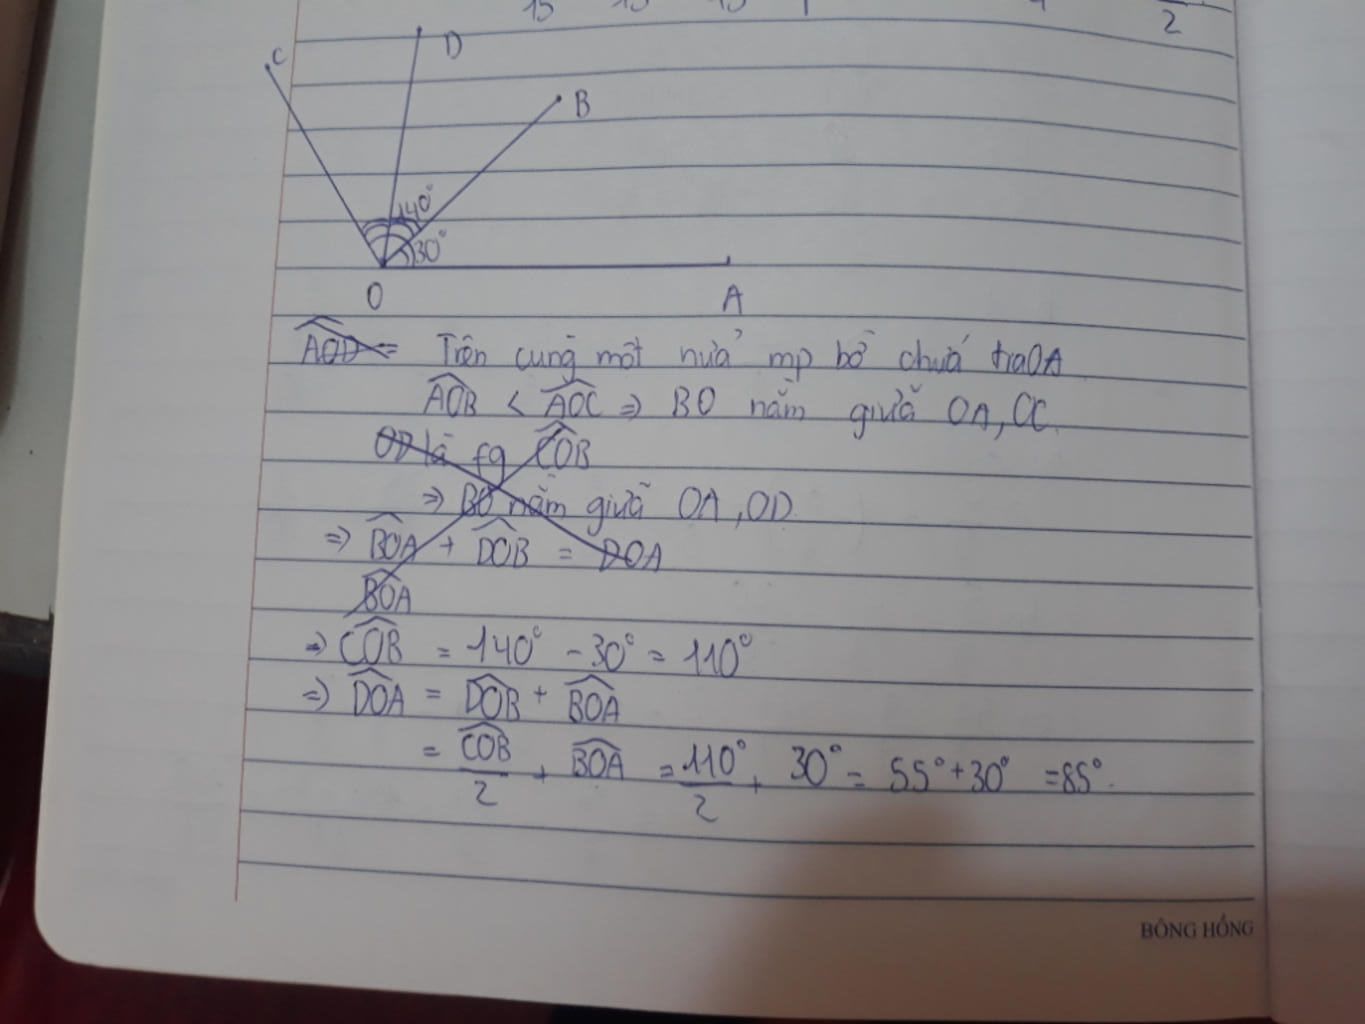 15 15 15
2
C
D
B
140°
30°
O
A
AOD = Trên cung một nửa mp bờ chứa tia OA
AOB < AOC => BO nằm giữa OA, OC
OD là fg COB
=> BO nằm giữa OA, OD
=> BOA + DOB = DOA
BOA
=> COB = 140° - 30° = 110°
=> DOA = DOB + BOA
= COB/2 + BOA = 110°/2 + 30° = 55° + 30° = 85°.
BÔNG HỒNG